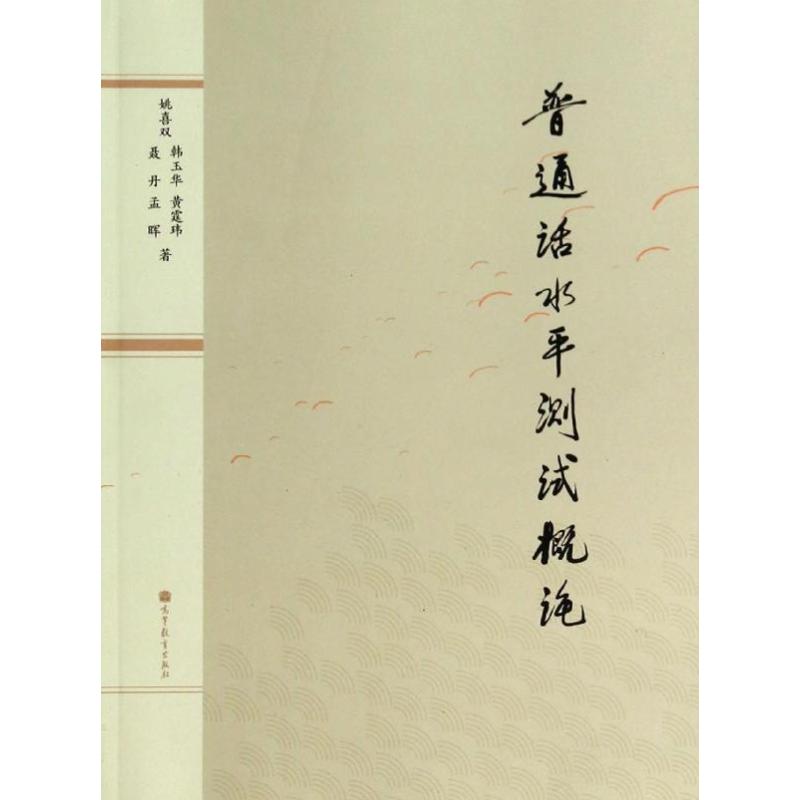 普通话水平测试概论
姚喜双
韩玉华 黄霆玮
聂丹 孟晖 著
高等教育出版社